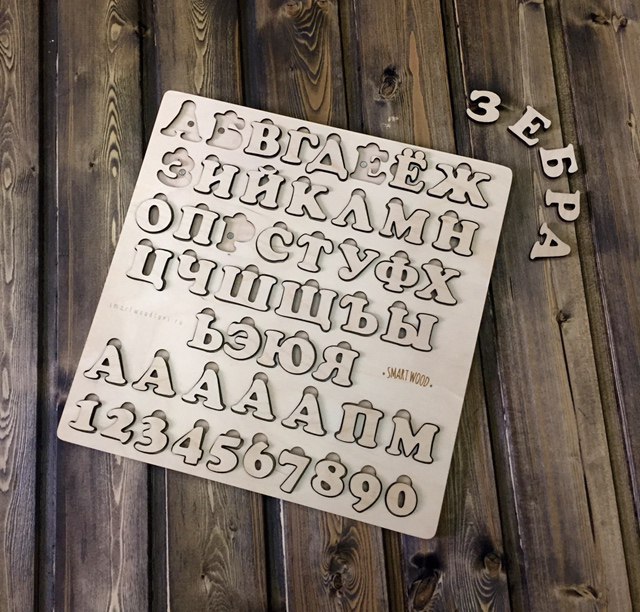 ЗЕБРА
АБВГДЕЁЖ
ЗИЙКЛМН
ОПРСТУФХ
ЦЧШЩЪЫ
ЬЭЮЯ
• SMART WOOD •
АААААПМ
1234567890